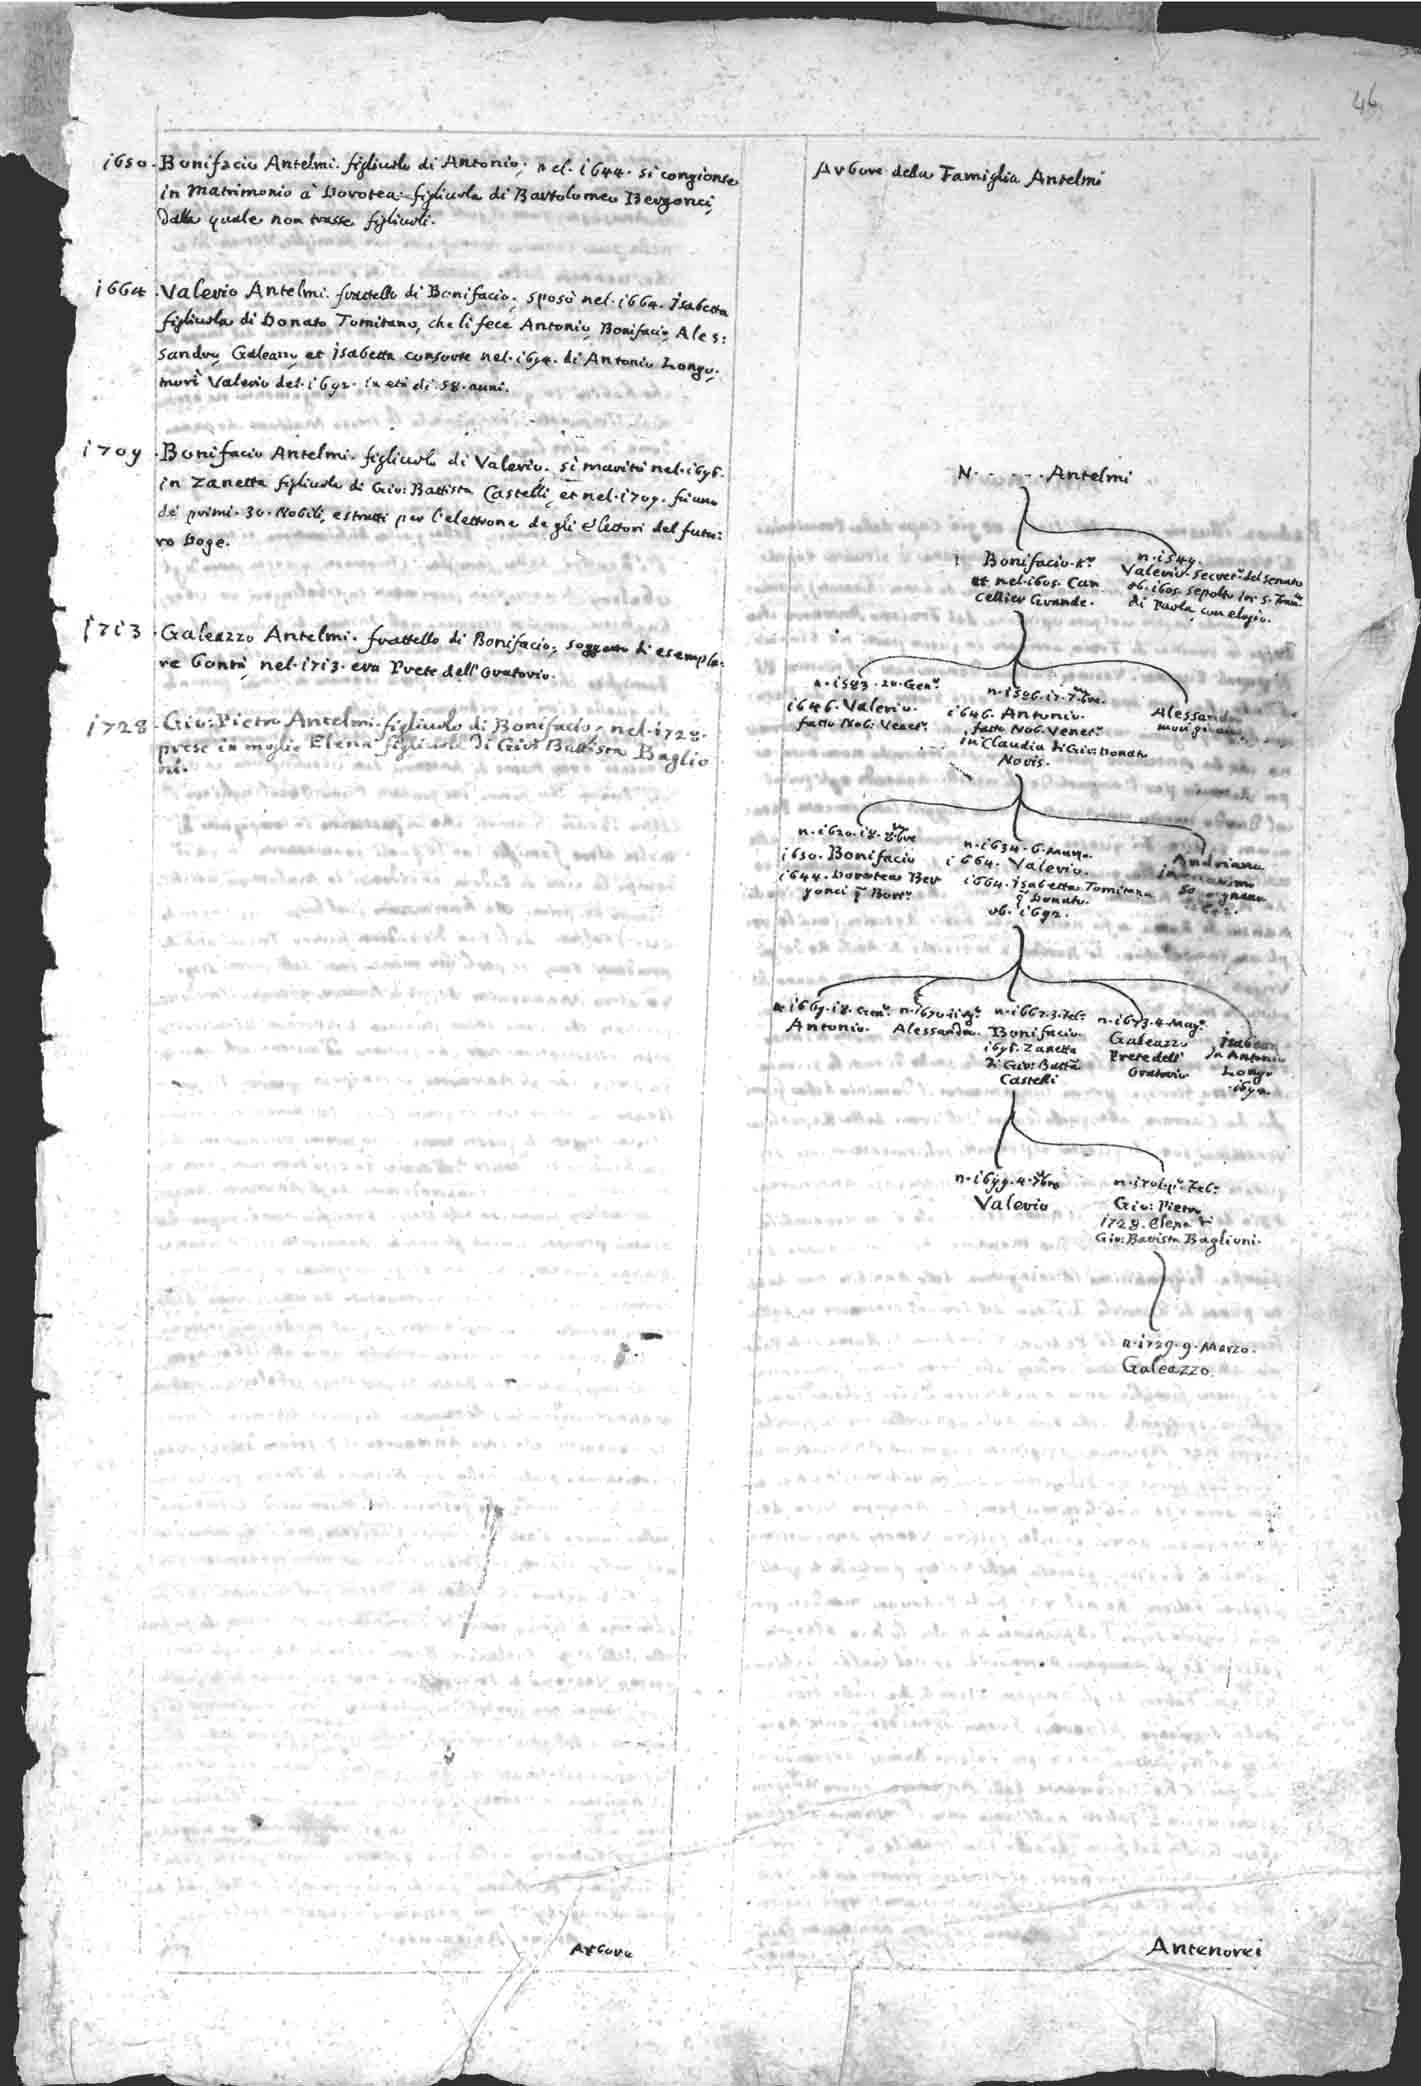 46
1650. Bonifacio Antelmi. figliuolo di Antonio; nel. 1644. si congionse
in Matrimonio à Dorotea figliuola di Bartolomeo Bergonci,
dalla quale non trasse figliuoli.
1664. Valerio Antelmi. frattello di Bonifacio; sposò nel. 1664. Isabetta
figliuola di Donato Tomitano, che li fece Antonio, Bonifacio, Ales:
sandro, Galeazzo, et Isabetta consorte nel. 1694. di Antonio Longo.
morì Valerio del. 1692. in età di 58. anni.
1709. Bonifacio Antelmi. figliuolo di Valerio. si maritò nel. 1696.
in Zanetta figliuola di Gio: Battista Castelli, et nel. 1709. fù uno
de' primi. 30. Nobili, estratti per l'elettione degli Elettori del futu:
ro Doge.
1713. Galeazzo Antelmi. frattello di Bonifacio; soggetto di esempla:
re bontà, nel. 1713. era Prete dell'Oratorio.
1728. Gio: Pietro Antelmi. figliuolo di Bonifacio, nel. 1728.
prese in moglie Elena figliuola di Gio: Battista Baglio
ni.
Arbore
Arbore della Famiglia Antelmi
N. - - - - Antelmi
Bonifacio. Kr.
et nel. 1605. Can
cellier Grande.
n. 1549.
Valerio. Secret.o del Senato
ob. 1605. sepolto in S. Fran.o
di Paola, con elogio.
n. 1583. 20. Gen.o
1646. Valerio.
fatto Nob: Venet.o
n. 1586. 17. 7mbre.
1646. Antonio.
fatto Nob. Venet.o
in Claudia di Gio: Donato
Novis.
Alessandro
n. 1620. 18. 8bre
1650. Bonifacio
1644. Dorotea Ber
gonci q. Bort.o
n. 1634. 6. Marzo.
1664. Valerio.
1664. Isabetta Tomitana
q. Donato.
ob. 1692.
Andriana
n. 1669. 18. Gen.o
Antonio.
Alessandro.
n. 1667. 3. Feb.o
Bonifacio.
1696. Zanetta
di Gio: Batta
Castelli
n. 1673. 4. Mag.o
Galeazzo
Prete dell'
Oratorio
Isabetta
in Antonio
Longo
1694.
n. 1699. 4. 7bre
Valerio
Gio: Pietro
1728. Elena di
Gio: Battista Baglioni.
n. 1729. 9. Marzo.
Galeazzo.
Antenorei